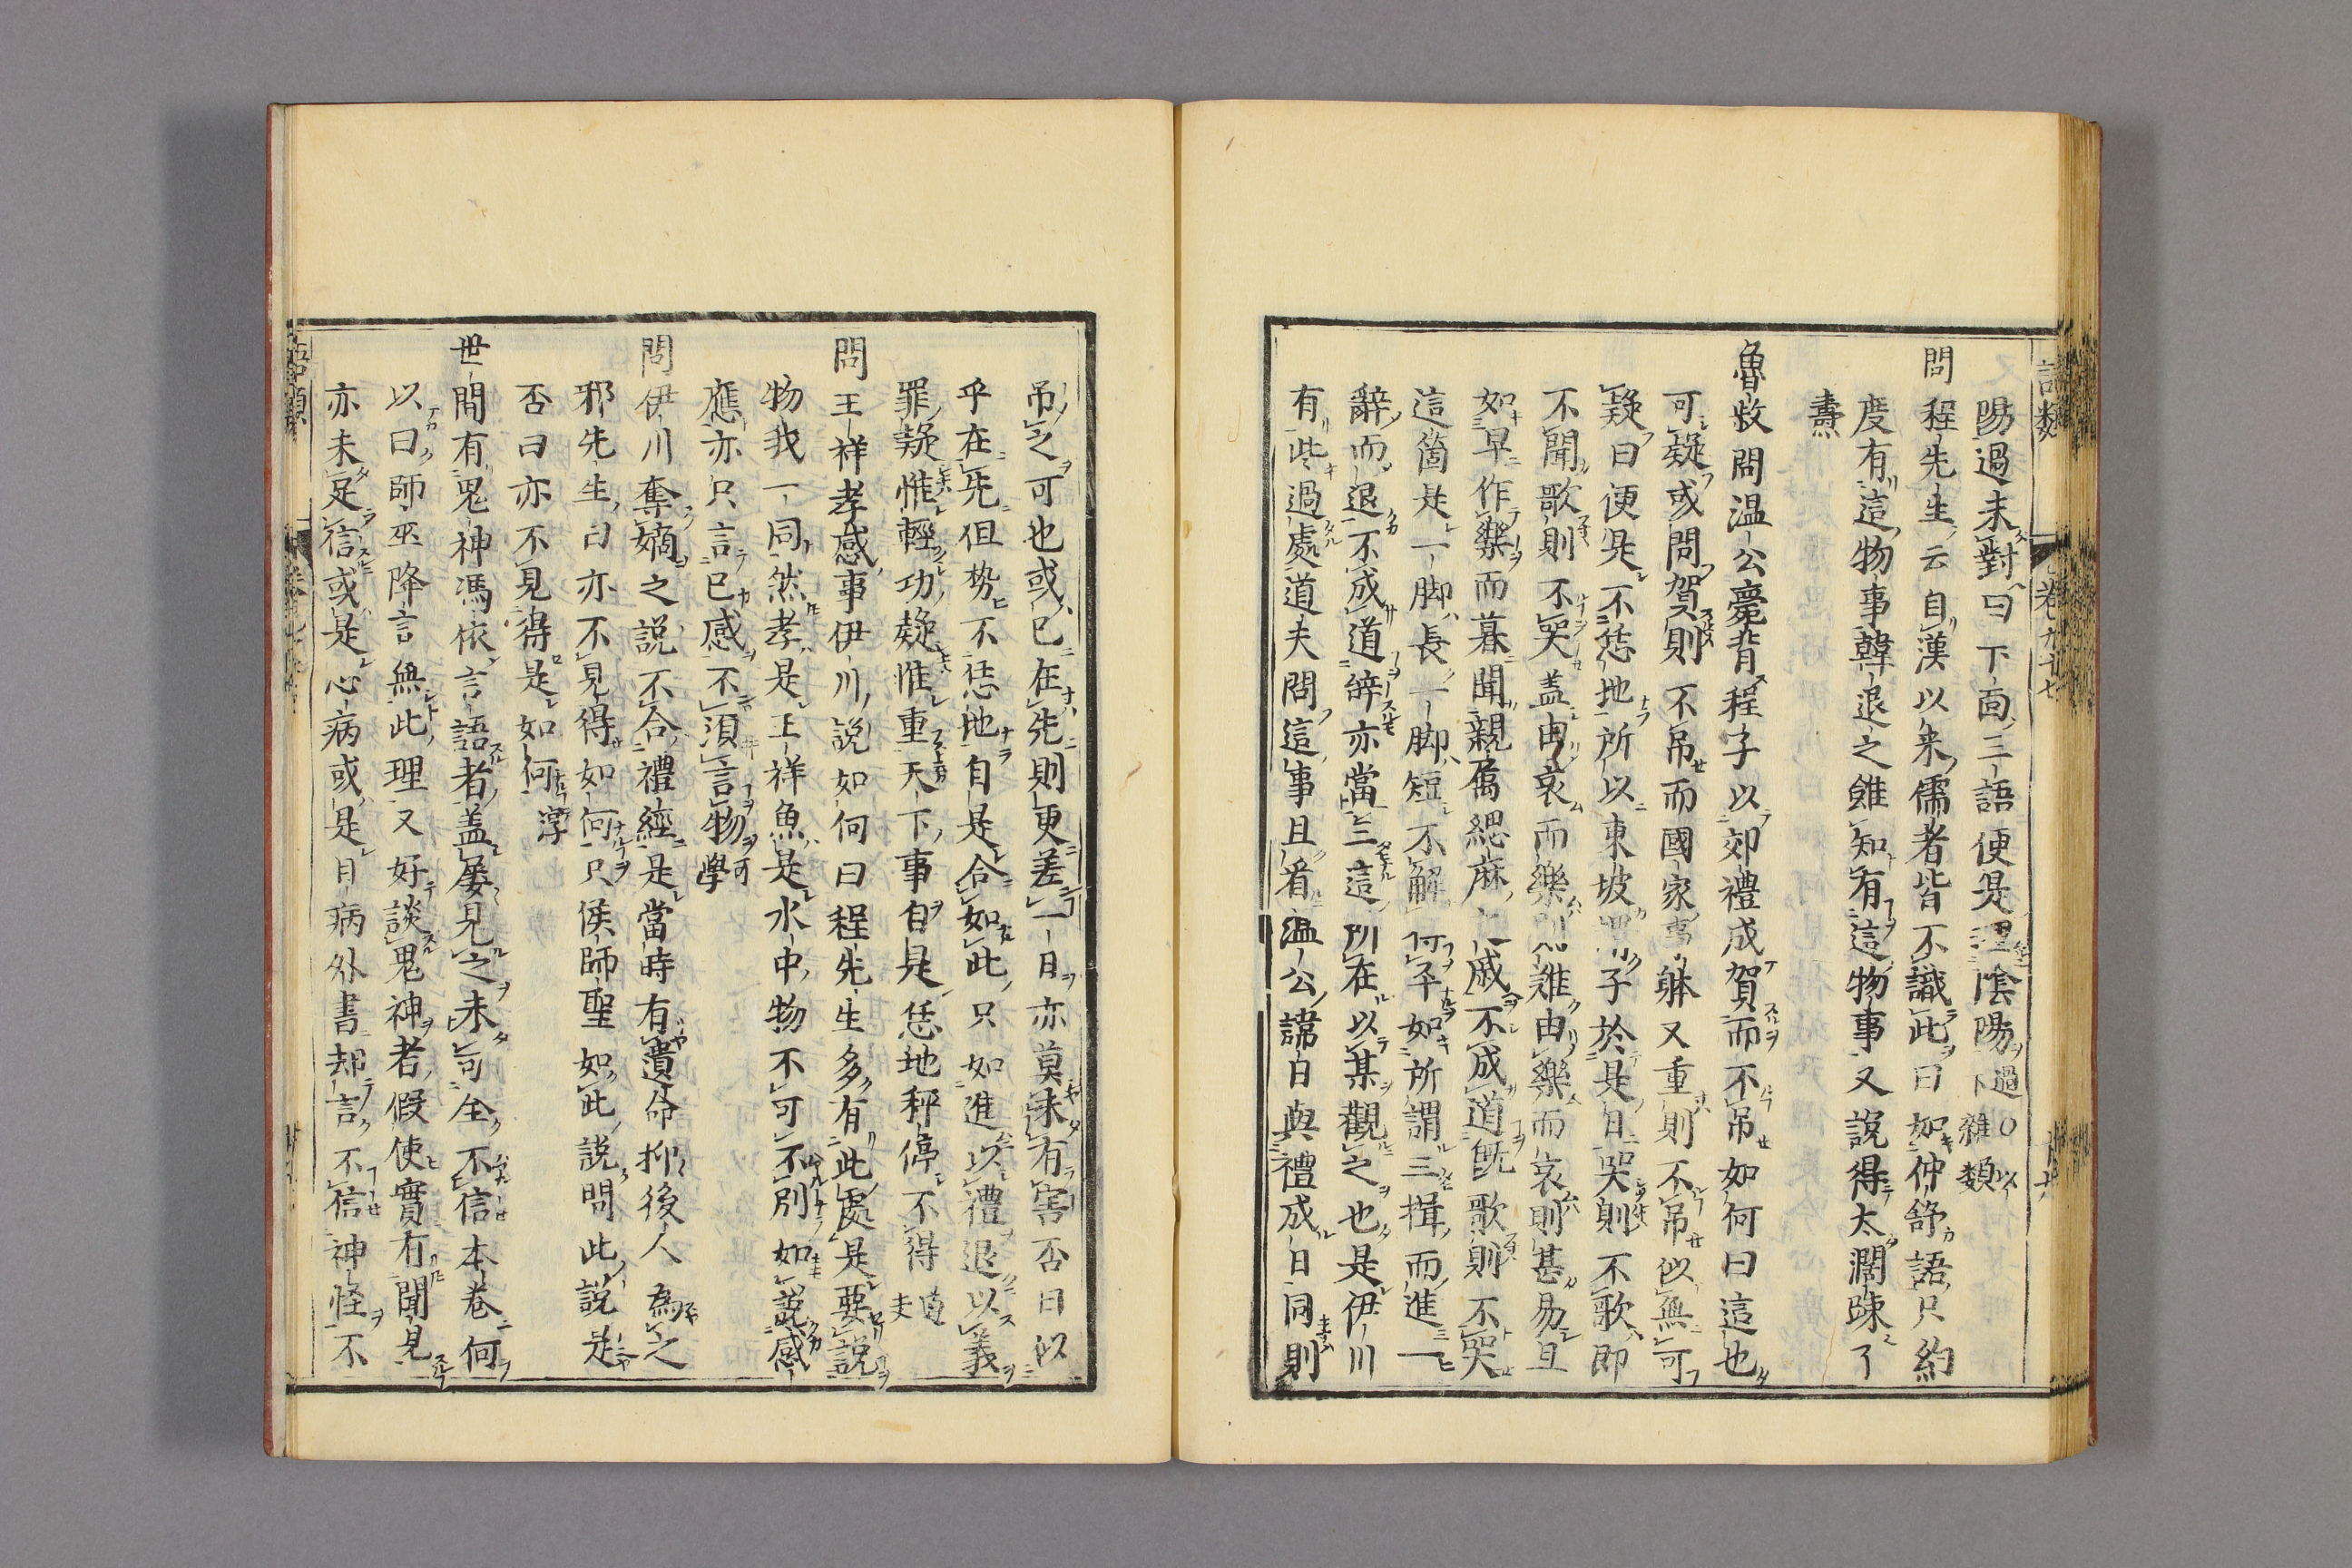 語類
卷九十七
陽過未對曰下面三語便是理陰陽過下○以雜類
問程先生云自漢以来儒者皆不識此曰如仲舒語只約
度有這物事韓退之雖知有這物事又說得太濶疎了
燾
魯叔問温公薨背程子以郊禮成賀而不吊如何曰這也
可疑或問賀則不吊而國家事躰又重則不吊似無可
疑曰便是不恁地所以東坡子於是日哭則不歌即
不聞歌則不哭盖由哀而樂則難由樂而哀則甚易且
如早作樂而暮聞親属緦麻戚不成道既歌則不哭
這箇是一脚長一脚短不解何平如所謂三揖而進一
辭而退不成道辭亦當三這所在以某觀之也是伊川
有些過處道夫問這事且看温公諱日與禮成日同則
吊之可也或已在先則更差一日亦莫未有害否曰似
乎在先但㔟不恁地自是合如此只如進以禮退以義
罪疑惟輕功疑惟重天下事自是恁地秤停不得道夫
問王祥孝感事伊川說如何曰程先生多有此處是要說
物我一同然孝是王祥魚是水中物不可不別如說感
應亦只言已感不須言物可學
問伊川奪嫡之說不合禮經是當時有遺命抑後人為之
邪先生曰亦不見得如何只侯師聖如此說問此說是
否曰亦不見得是如何淳
世間有鬼神馮依言語者盖屡見之未可全不信本卷何
以曰師巫降言無此理又好談鬼神者假使實有聞見
亦未足信或是心病或是目病外書却言不信神怪不
語類